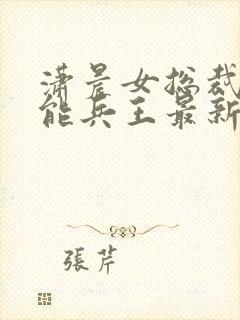 潇晨女总裁
能兵王最新
張芹